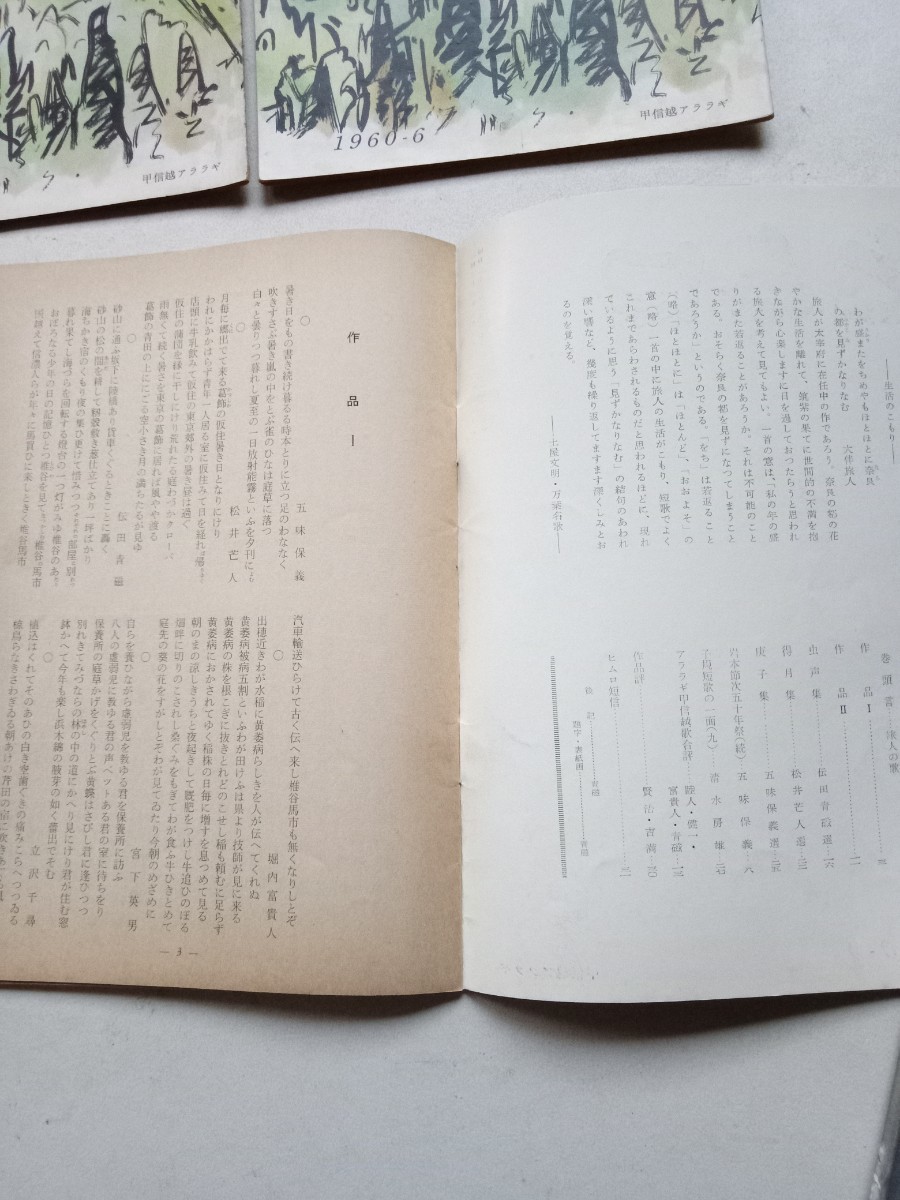 甲信越アララギ
1960-6
甲信越アララギ
――生活のこもり――
わが盛またをちめやもほとほとに奈良
の都を見ずかなりなむ
大伴旅人
旅人が太宰府に在任中の作であろう。奈良の都の花
やかな生活を離れて、筑紫の果てに世間的の不満を抱
きながら心楽しまずに日を過しておつたろうと思われ
る旅人を考えて見てもよい。一首の意は、「私の年の盛
りがまた若返ることがあろうか、それは不可能のこと
である。おそらく奈良の都を見ずになつてしまうこと
であろうか」というのである。「をち」は若返ること
(略)「ほとほとに」は「ほとんど」、「おおよそ」の
意(略)一首の中に旅人の生活がこもり、短歌でよく
これまであらわされるものだと思われるほどに、現れ
ているように思う「見ずかなりなむ」の結句のあわれ
深い響など、幾度も繰り返してますます深くしみとお
るのを覚える。
――土屋文明・万葉名歌――
巻頭言
旅人の歌
作品Ⅰ
作品Ⅱ
虫声集 伝田青磁選
得月集 松井芒人選
庚子集 五味保義選
岩本節次五十年祭(続) 五味保義
子規短歌の一面(九) 清水房雄
アララギ甲信越歌合評
富貴人・青磁
作品評 賢治・吉満
ヒムロ短信
題字・表紙画
作品Ⅰ
○
五味保義
暑き日をもの書き続け暮る時本とりに立つ足のわななく
吹きすさぶ暑き嵐の中をとぶ雀のひなは庭草に落つ
白々と曇りつつ暮れし夏至の一日放射能霧といふを夕刊にも
○
松井芒人
月毎に郷出でて来る葛飾の仮住暑き日となりにけり
われにかかはらず青年一人居る室に仮住みて日を経れ
店頭に牛乳飲みて仮住の東京郊外の暑き昼は過ぐ
仮住の蒲団を縁に干しにけり荒れたる庭わづかクローバ
雨無くて続く暑さを東京の葛飾に居れば風やや渡る
葛飾の青田の上ににごる空小さき月の満ちたるが見ゆ
○
伝田青磁
砂山に通ふ坂下に陸橋あり貨車くぐるときことに轟く
海ちかき宿のくもり夜の集ひ更けて
暮れ果てし海づらを回転する燈台の一つ灯がみゆ椎谷のあり
おぼろなる少年の日の記憶ひとつ椎谷を見て
国越えて信濃人らが年々に馬買ひに来しときく椎谷馬市
汽車輸送ひらけて古く伝へ来し椎谷馬市も無くなりしとぞ
○
堀内富貴人
出穂近きわが水稲に黄萎病らしきを人が伝へてくれぬ
黄萎病被病五割といふわが田けふは県より技師が見に来る
黄萎病の株を根こぎに抜きとれどのこせし稲も頼むに足らず
黄萎病におかされてゆく稲株の日毎に増すを息つめて見る
朝のまの涼しきうちと夜起きして厩肥をつけし牛追ひのぼる
畑畔に切りのこされし桑ぐみをもぎてわが食ふ牛ひきとめて
庭先の葵の花をすがしとぞわが見てゐたり今朝のめざめに
○
宮下英男
自らを養ひながら虚弱児を教ゆる君を保養所に訪ふ
八人の虚弱児に教ゆる君の声ベットある君の室に待ちをり
保養所の庭草かげをくぐりとぶ黄鶲はさびし君に逢ひつつ
別れきてみづならの林の中の道にかへり見にけり君が住む窓
鉢かへて今年も楽し浜木綿の腋芽の如く蕾出でそむ
○
立沢千尋
植込はくれてそのあひの白き空歯ぐきの痛みこらへつつゐる
— 3 —